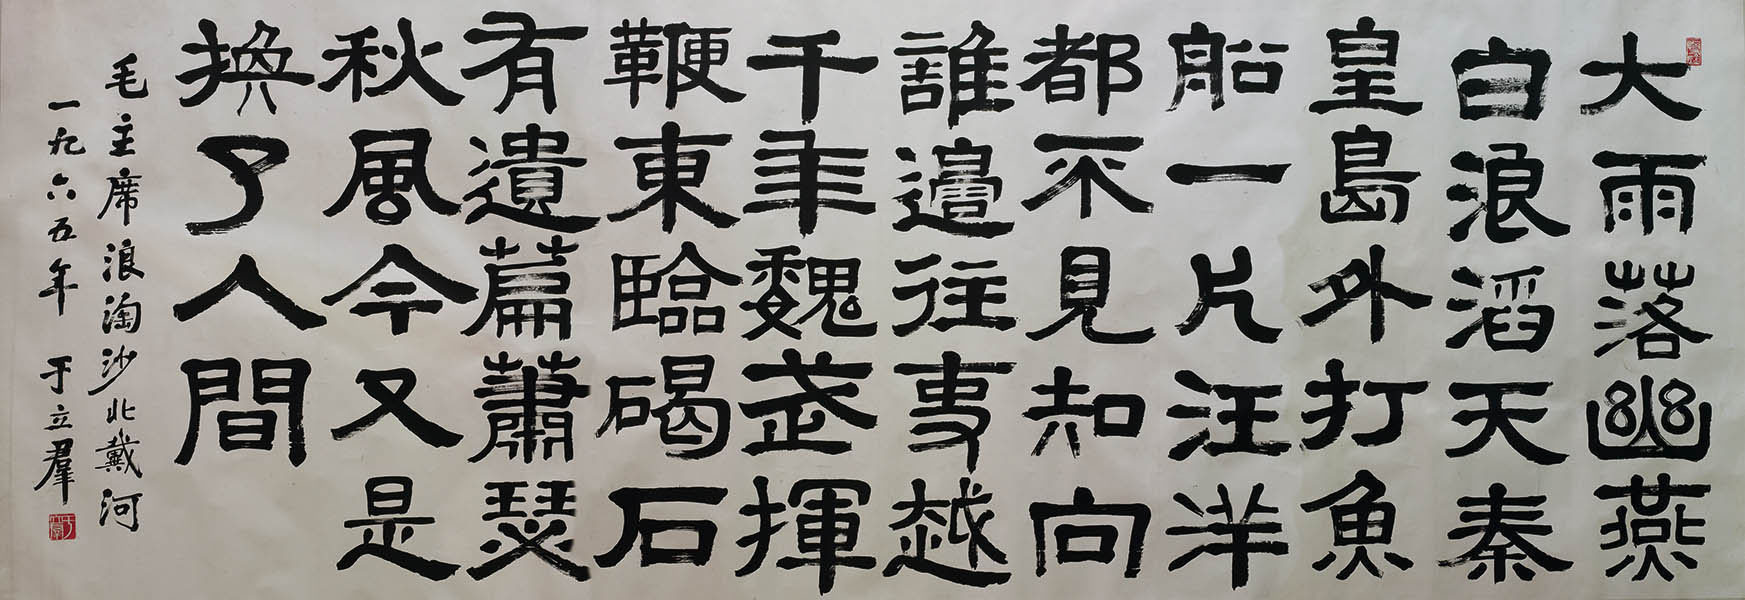 大雨落幽燕
白浪滔天秦
皇島外打魚
船一片汪洋
都不見知向
誰邊往事越
千年魏武揮
鞭東臨碣石
有遺篇蕭瑟
秋風今又是
換了人間
毛主席浪淘沙北戴河
一九六五年 于立羣